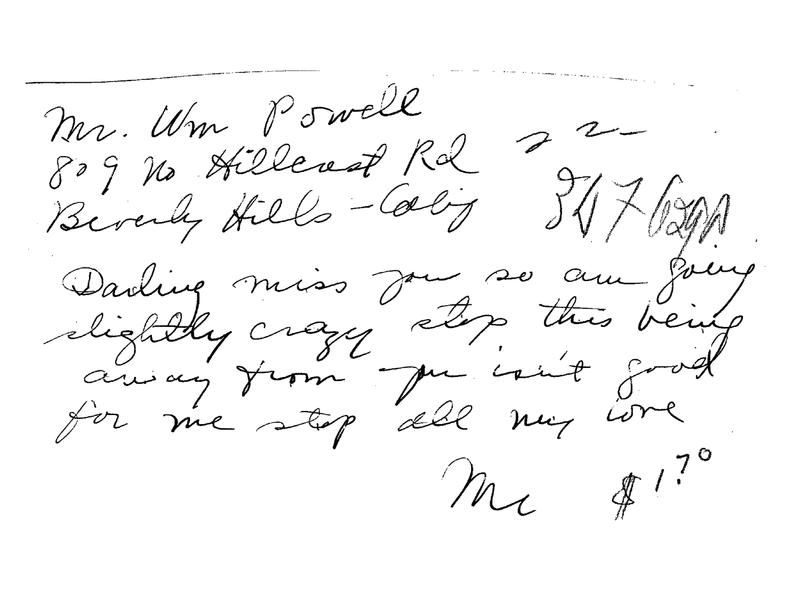 Mr. Wm Powell
809 No Hillcrest Rd
Beverly Hills - Calif
22-
347 62pp
Darling miss you so am going
slightly crazy stop this being
away from you isn't good
for me stop all my love
Me
$1.70